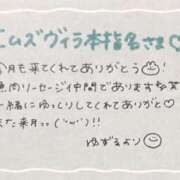 エムズヴィラ本指名さま♡
月も来てくれてありがとう
魚肉ソーセージ仲間でありますお笑
一緒にゆっくりしてくれてありがと♡
また来月っっ('ω')!!
ゆずるより